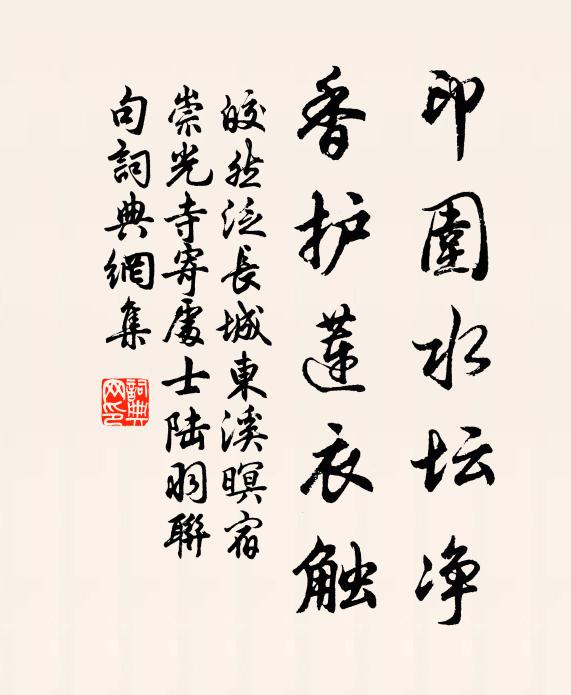 印圍水坛净
香护蓮衣触
皎然泛長城東溪暝宿
崇光寺寄處士陆羽聯
句詞典網集
詞典网印